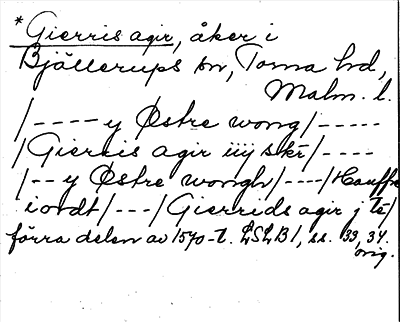 *Gierris agir, åker i
Bjällerups sn, Torna hd,
Malm. l.
/---- y Østre wong/-----
/Gierris agir iiij skr/----
/-- y Østre wongh/----/Hauffre
iordt/---/Gierrids agir j
förra delen av 1570-t. LSLB1, ss. 33, 34.
orig.